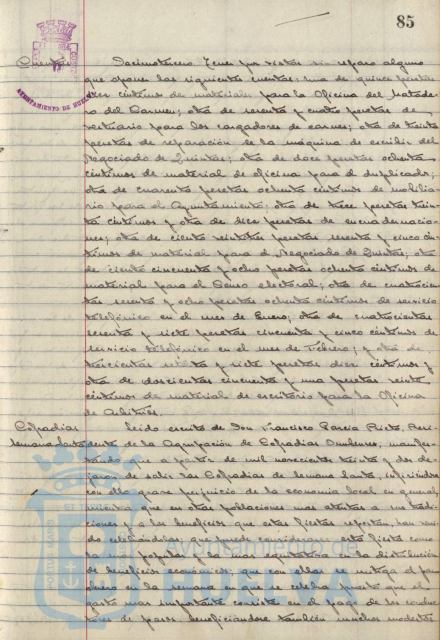 85
AYUNTAMIENTO DE HUELVA
Cuentas Decimotercero. Tener por vistas sin reparo alguno
que oponer las siguientes cuentas: una de quince pesetas
diez céntimos de materiales para la Oficina del Matade-
ro del Carmen; otra de sesenta y cuatro pesetas de
vestuario para los cargadores de carnes; otra de treinta
pesetas de reparación de la máquina de escribir del
Negociado de Quintas; otra de doce pesetas ochenta
céntimos de material de oficina para el duplicado;
otra de cuarenta pesetas ochenta céntimos de mobilia-
rio para el Ayuntamiento; otra de trece pesetas trein-
ta céntimos y otra de diez pesetas de encuadernacio-
nes; otra de ciento veintitres pesetas sesenta y cinco cén-
timos de material para el Negociado de Quintas; otra
de ciento cincuenta y ocho pesetas ochenta céntimos de
material para el Censo electoral; otra de cuatrocien-
tas sesenta y ocho pesetas ochenta céntimos de servicio
telefónico en el mes de Enero; otra de cuatrocientas
sesenta y siete pesetas cincuenta y cinco céntimos de
servicio telefónico en el mes de Febrero; y otra de
trescientas y siete pesetas diez céntimos y
otra de doscientas cincuenta y una pesetas veinte
céntimos de material de escritorio para la Oficina
de Arbitrios.
Cofradías Leido escrito de Don Francisco García Prieto, Presi-
Semana Santa dente de la Agrupación de Cofradías Onubenses, manifes-
tando que a partir de mil novecientos treinta y dos de-
jaron de salir las Cofradías de Semana Santa, infiriéndose
con ello grave perjuicio de la economía local en general,
mientras que en otras poblaciones mas atentas a sus tradi-
ciones y a los beneficios que estas fiestas reportan, han veni-
do celebrándolas; que puede considerarse esta fiesta como
la mas popular y la mas equitativa en la distribución
de beneficios económicos; que con ellas se mitiga el paro
obrero en la semana en que se celebra puesto que el
gasto mas importante consiste en el pago de los conduc-
tores de pasos beneficiándose también muchos modestos
Ayuntamiento de
HUELVA